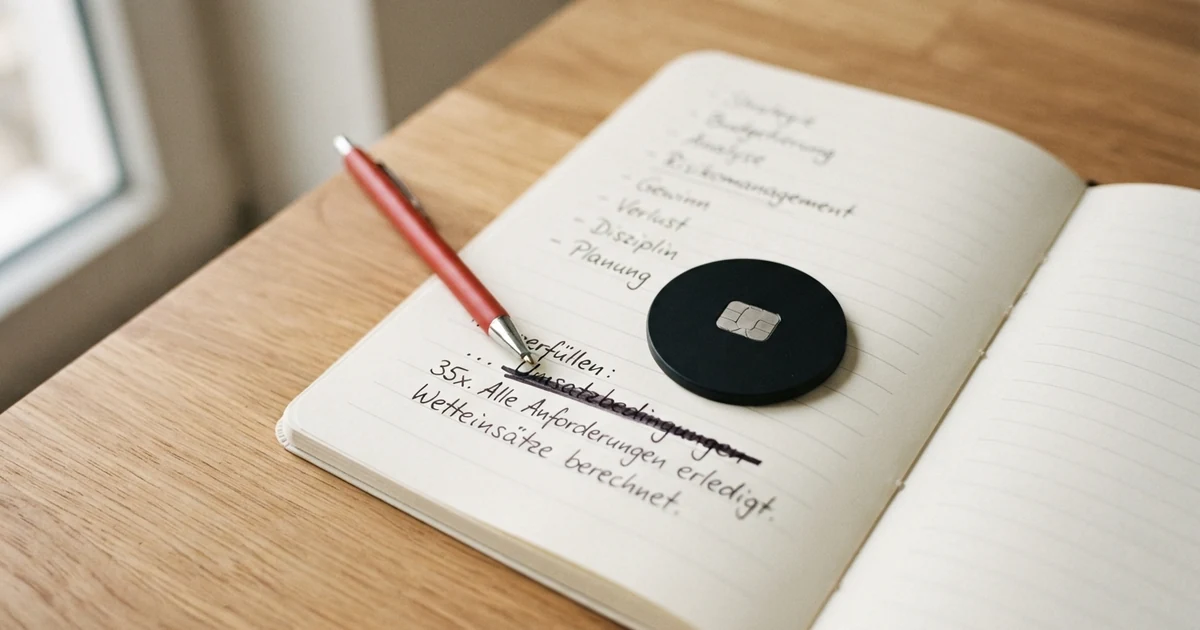 - Strategie
- Budgetierung
- Analyse
- Risikomanagement
- Gewinn
- Verlust
- Disziplin
- Planung
erfüllen:
.... Umsatzbedingungen
35x. Alle Anforderungen erledigt.
Wetteinsätze berechnet.